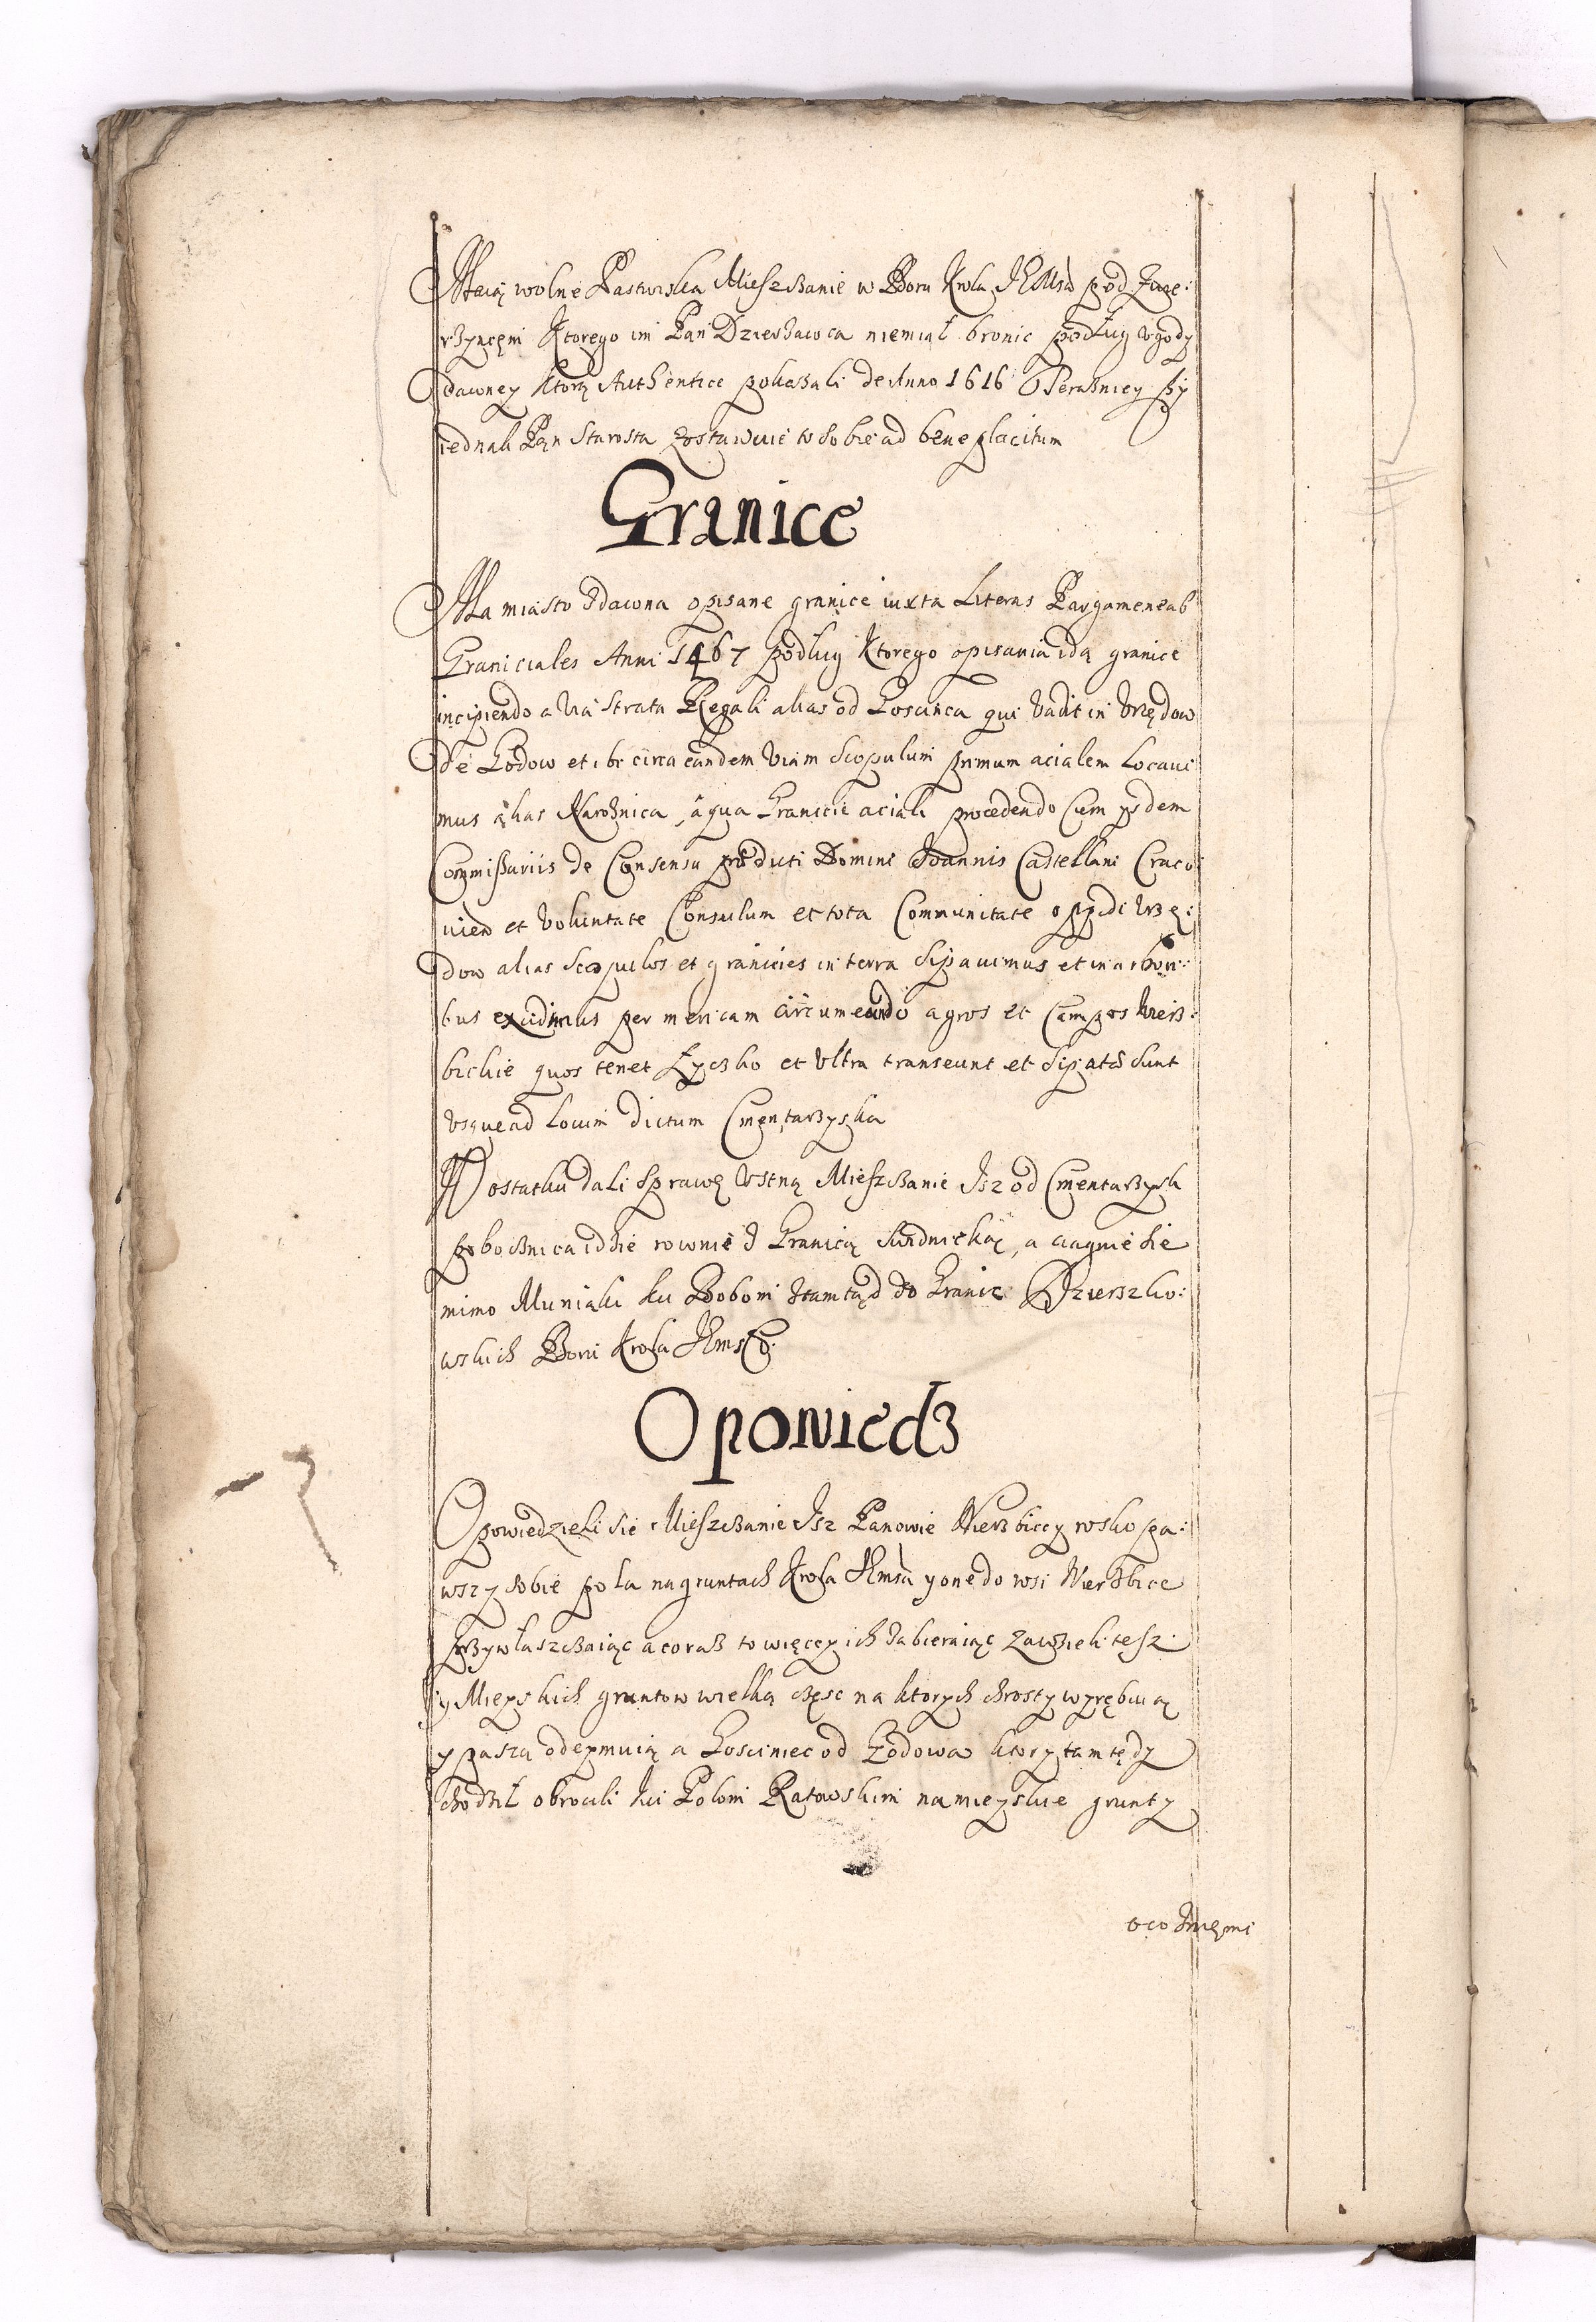 Maią wolne Pastwiska Mieszczanie w Boru Krola JEMsci pod Zwie:
rzyncem Ktorego im Pan Dzierzawca niemiał bronic podług vgody
dawney Ktorą Authentice pokazali de Anno 1616 Terazniey
iednak Pan Starosta zostawuie to sobie ad bene placitum
Granice
Ma miasto zdawna opisane granice iuxta Literas Pargameneas
Graniciales Anni 1467 podług Ktorego opisania idą granice
incipiendo a via strata Regali alias od Goscinca qui vadit in Vrzędow
de Godow et ibi circa eandem viam Scopulum primum acialem Locaui
mus alias Naroznica, a qua Granicie aciali procedendo Cum ysdem
Commissariis de Consensu præducti Domini Joannis Castellani Craco
uien et voluntate Consulum et tota Communitate oppidi Vrzę:
dow alias Scopulos et granicies in terra Sipauimus et in arbori:
bus excidimus per mericam circumeundo agros et Campos Wierz:
bickie quos tenet Łyczko et vltra transeunt et Sipatæ sunt
vsque ad Locum dictum Cmentarzyska
W ostatku dali Sprawę vstną Mieszczanie Isz od Cmentarzysk
pobocznica idzie rownie z Granicą Sudnicką, a ciągnie sie
mimo Muniaki ku Bobom ztamtąd do Granic Dzierzko:
wskich Boru Krola JEmsCi
Opowiedz
Opowiedzieli sie Mieszczanie Isz Panowie Wierzbiccy roskopa:
wszy sobie pola na gruntach Krola JEmsci y one do wsi Wierzbice
przywłaszczaiąc a coraz to więcey ich zabieraiąc zawzieli tesz
y Mieyskich gruntow wielką częsc na ktorych chrosty wyrębuią
y paszą odeymuią a Gosciniec od Godowa ktory tamtędy
chodził obrocili ku Polom Ratowskim na mieyskie grunty
o co znięmi